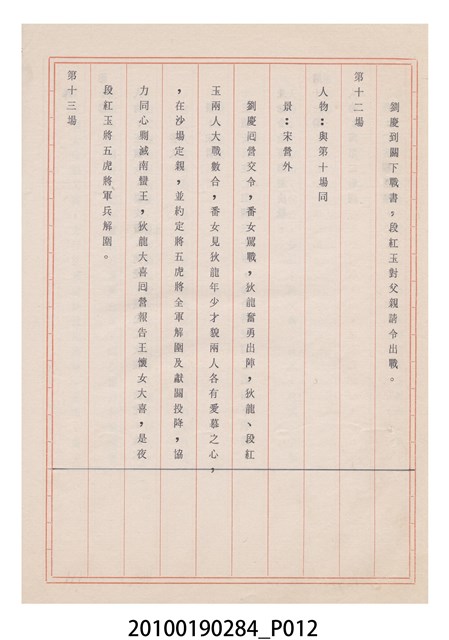 劉慶到關下戰書，段紅玉對父親請令出戰。
第十二場
人物：與第十場同
景：宋營外
劉慶囘營交令，番女駡戰，狄龍奮勇出陣，狄龍、段紅
玉兩人大戰數合，番女見狄龍年少才貌兩人各有愛慕之心，
，在沙場定親，並約定將五虎將全軍解圍及獻關投降，協
力同心剿滅南蠻王，狄龍大喜囘營報告王懷女大喜，是夜
段紅玉將五虎將軍兵解圍。
第十三場
20100190284_P012